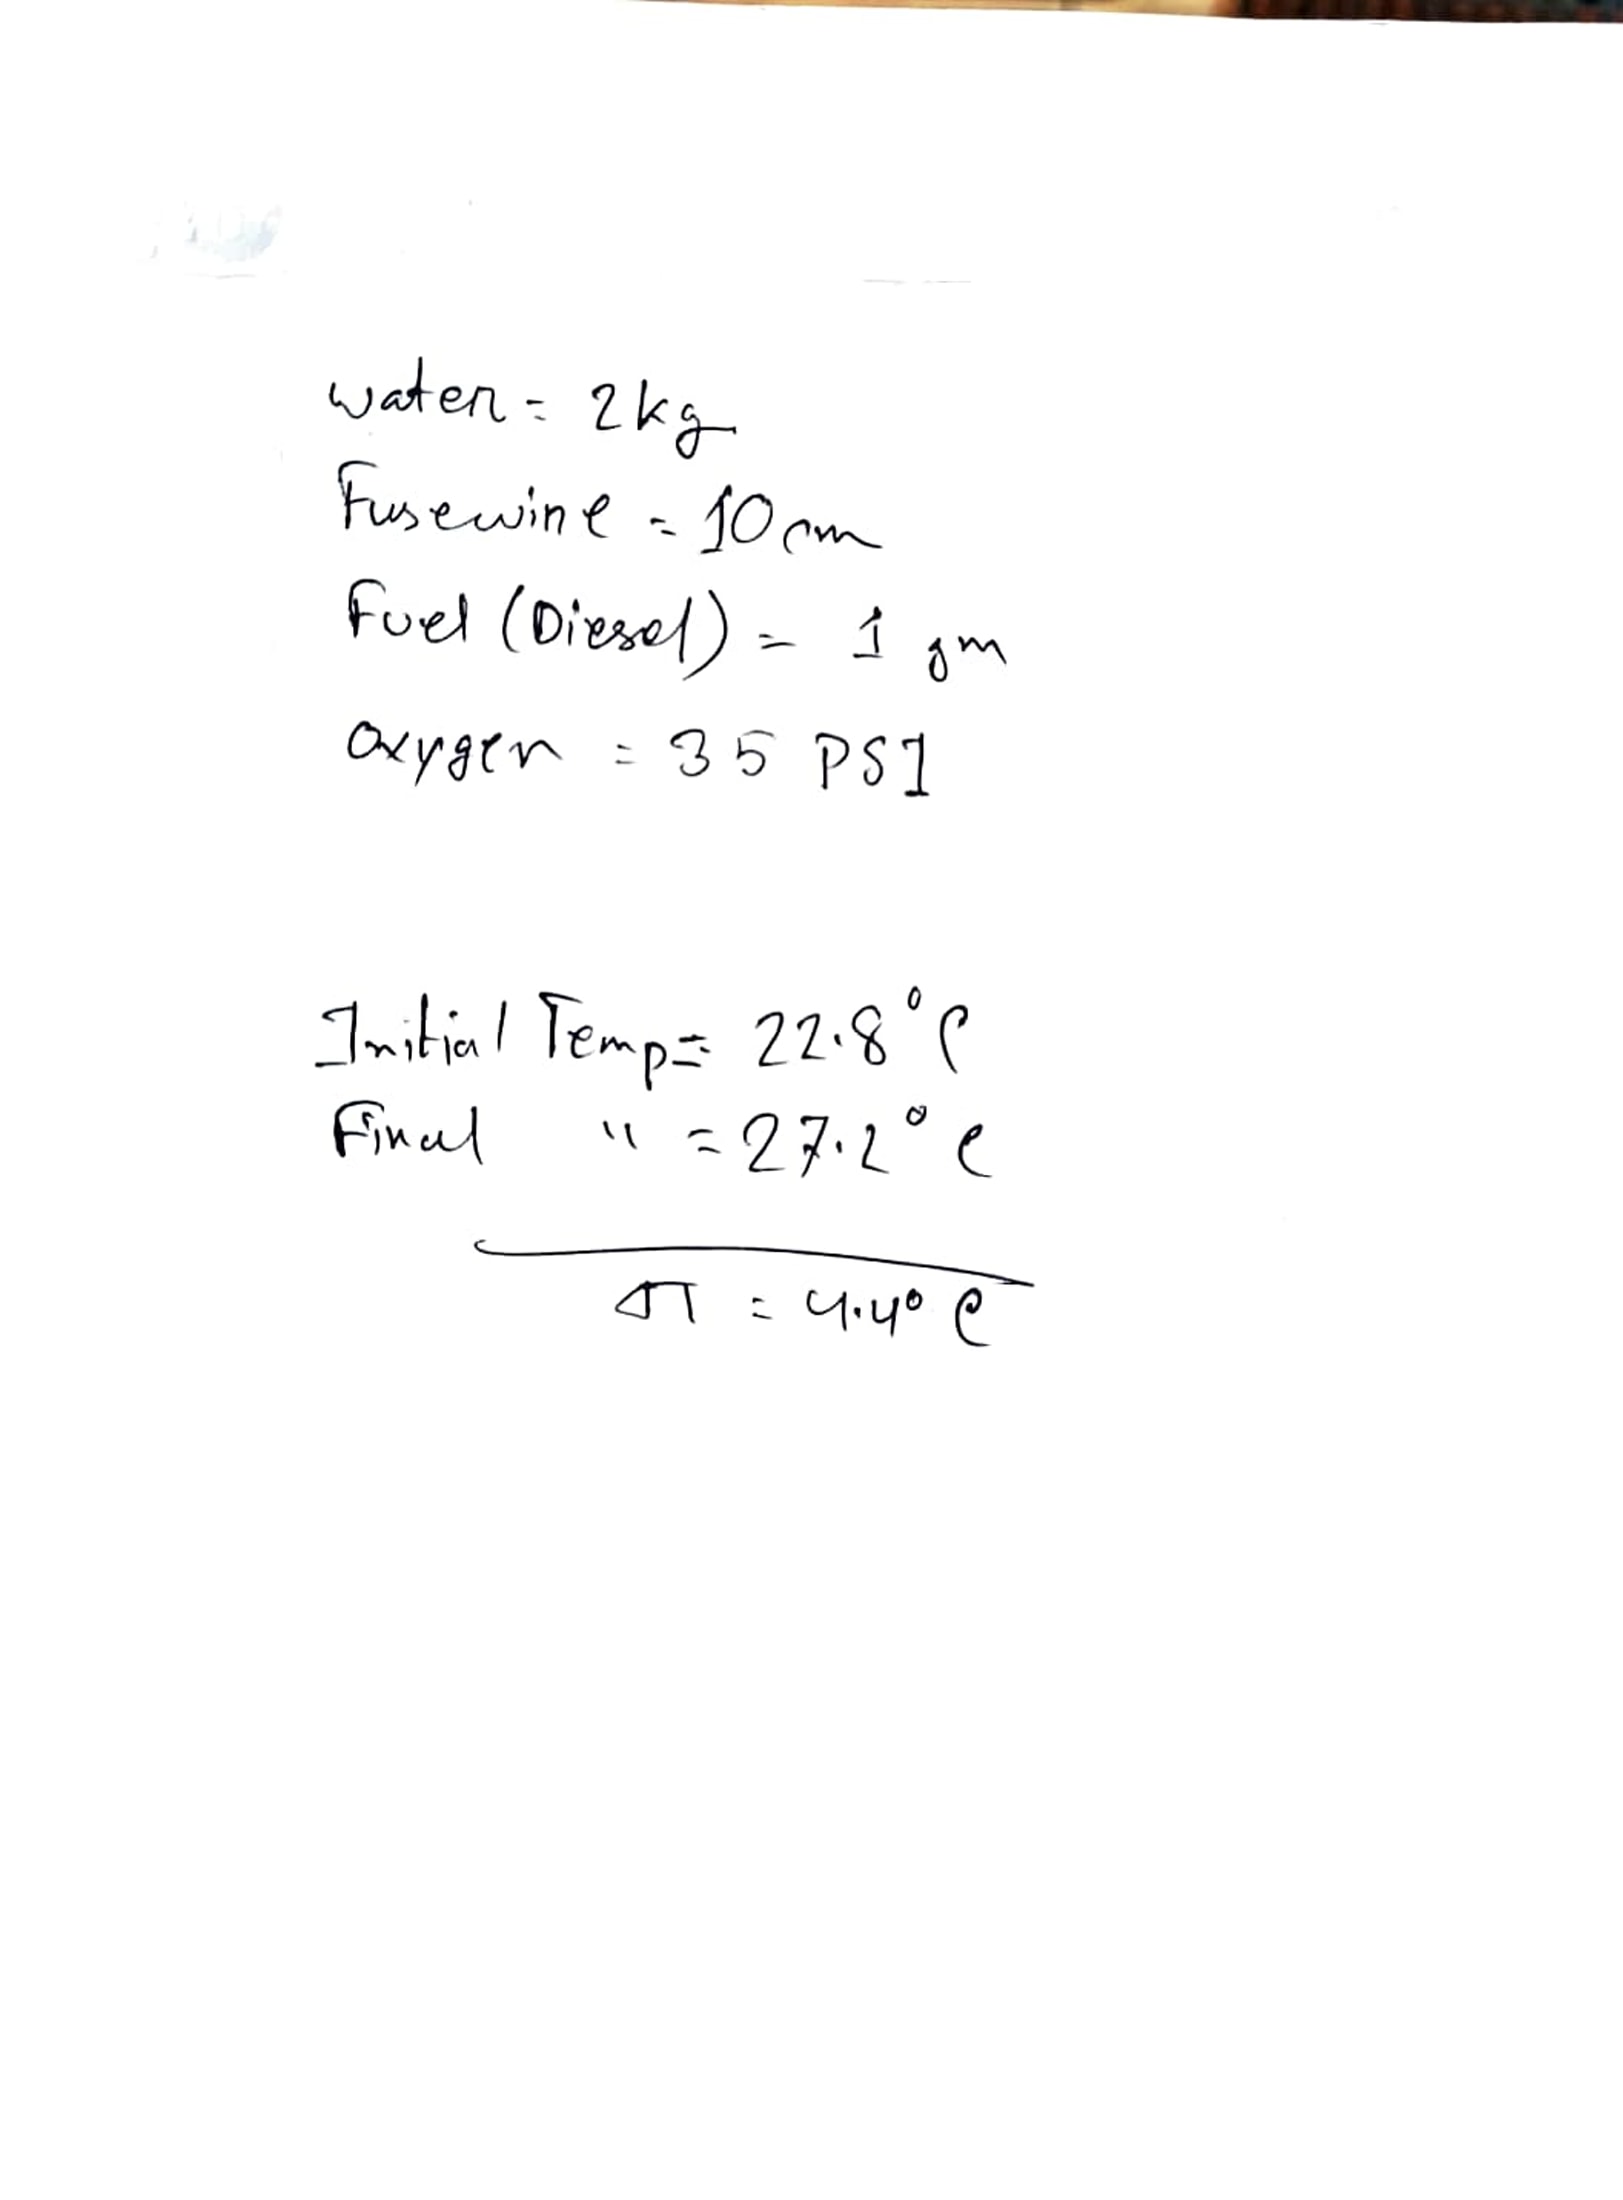 water = 2kg
Fusewire = 10 cm
Fuel (Diesel) = 1 gm
Oxygen = 35 PSI
Initial Temp = 22.8° C
Final " = 27.2° C
ΔT = 4.4° C